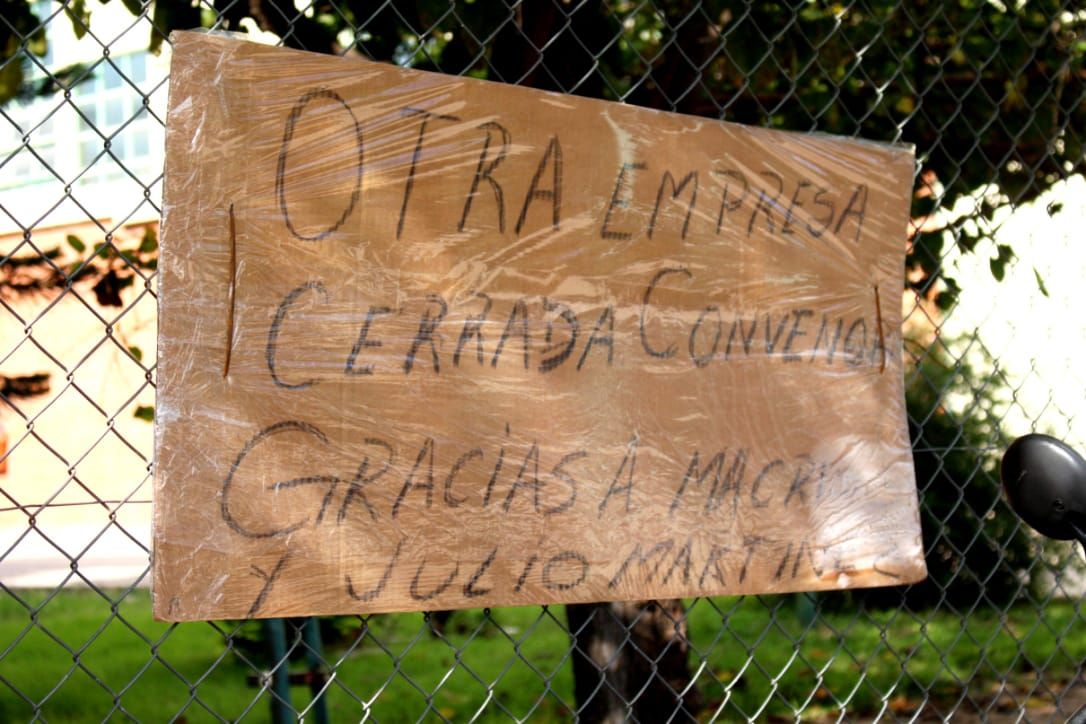 OTRA EMPRESA
CERRADA CONVENOR
GRACIAS A MACRI
Y JULIO MARTINEZ